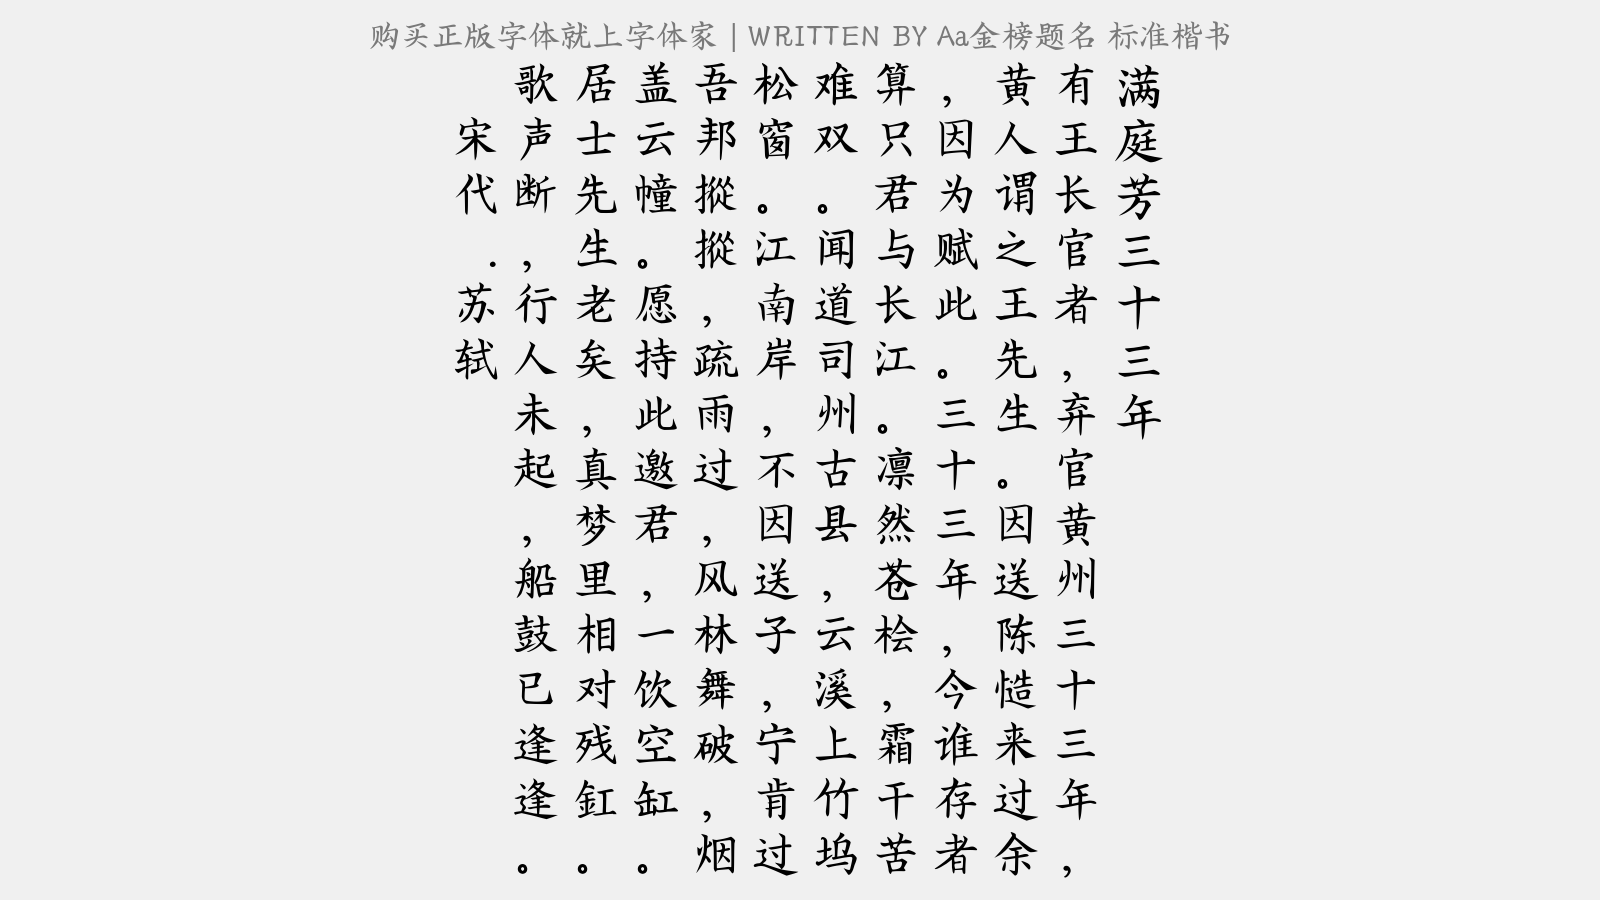 购买正版字体就上字体家 | WRITTEN BY Aa金榜题名 标准楷书
满庭芳三十三年
有王长官者，弃官黄州三十三年，
黄人谓之王先生。因送陈慥来过余
，因为赋此。三十三年，今谁存者
算只君与长江。凛然苍桧，霜干苦
难双。闻道司州古县，云溪上竹坞
松窗。江南岸，不因送子，宁肯过
吾邦摐摐，疏雨过，风林舞破，烟
盖云幢。愿持此邀君，一饮空缸。
居士先生老矣，真梦里相对残釭。
歌声断，行人未起，船鼓已逢逢。
宋代.苏轼